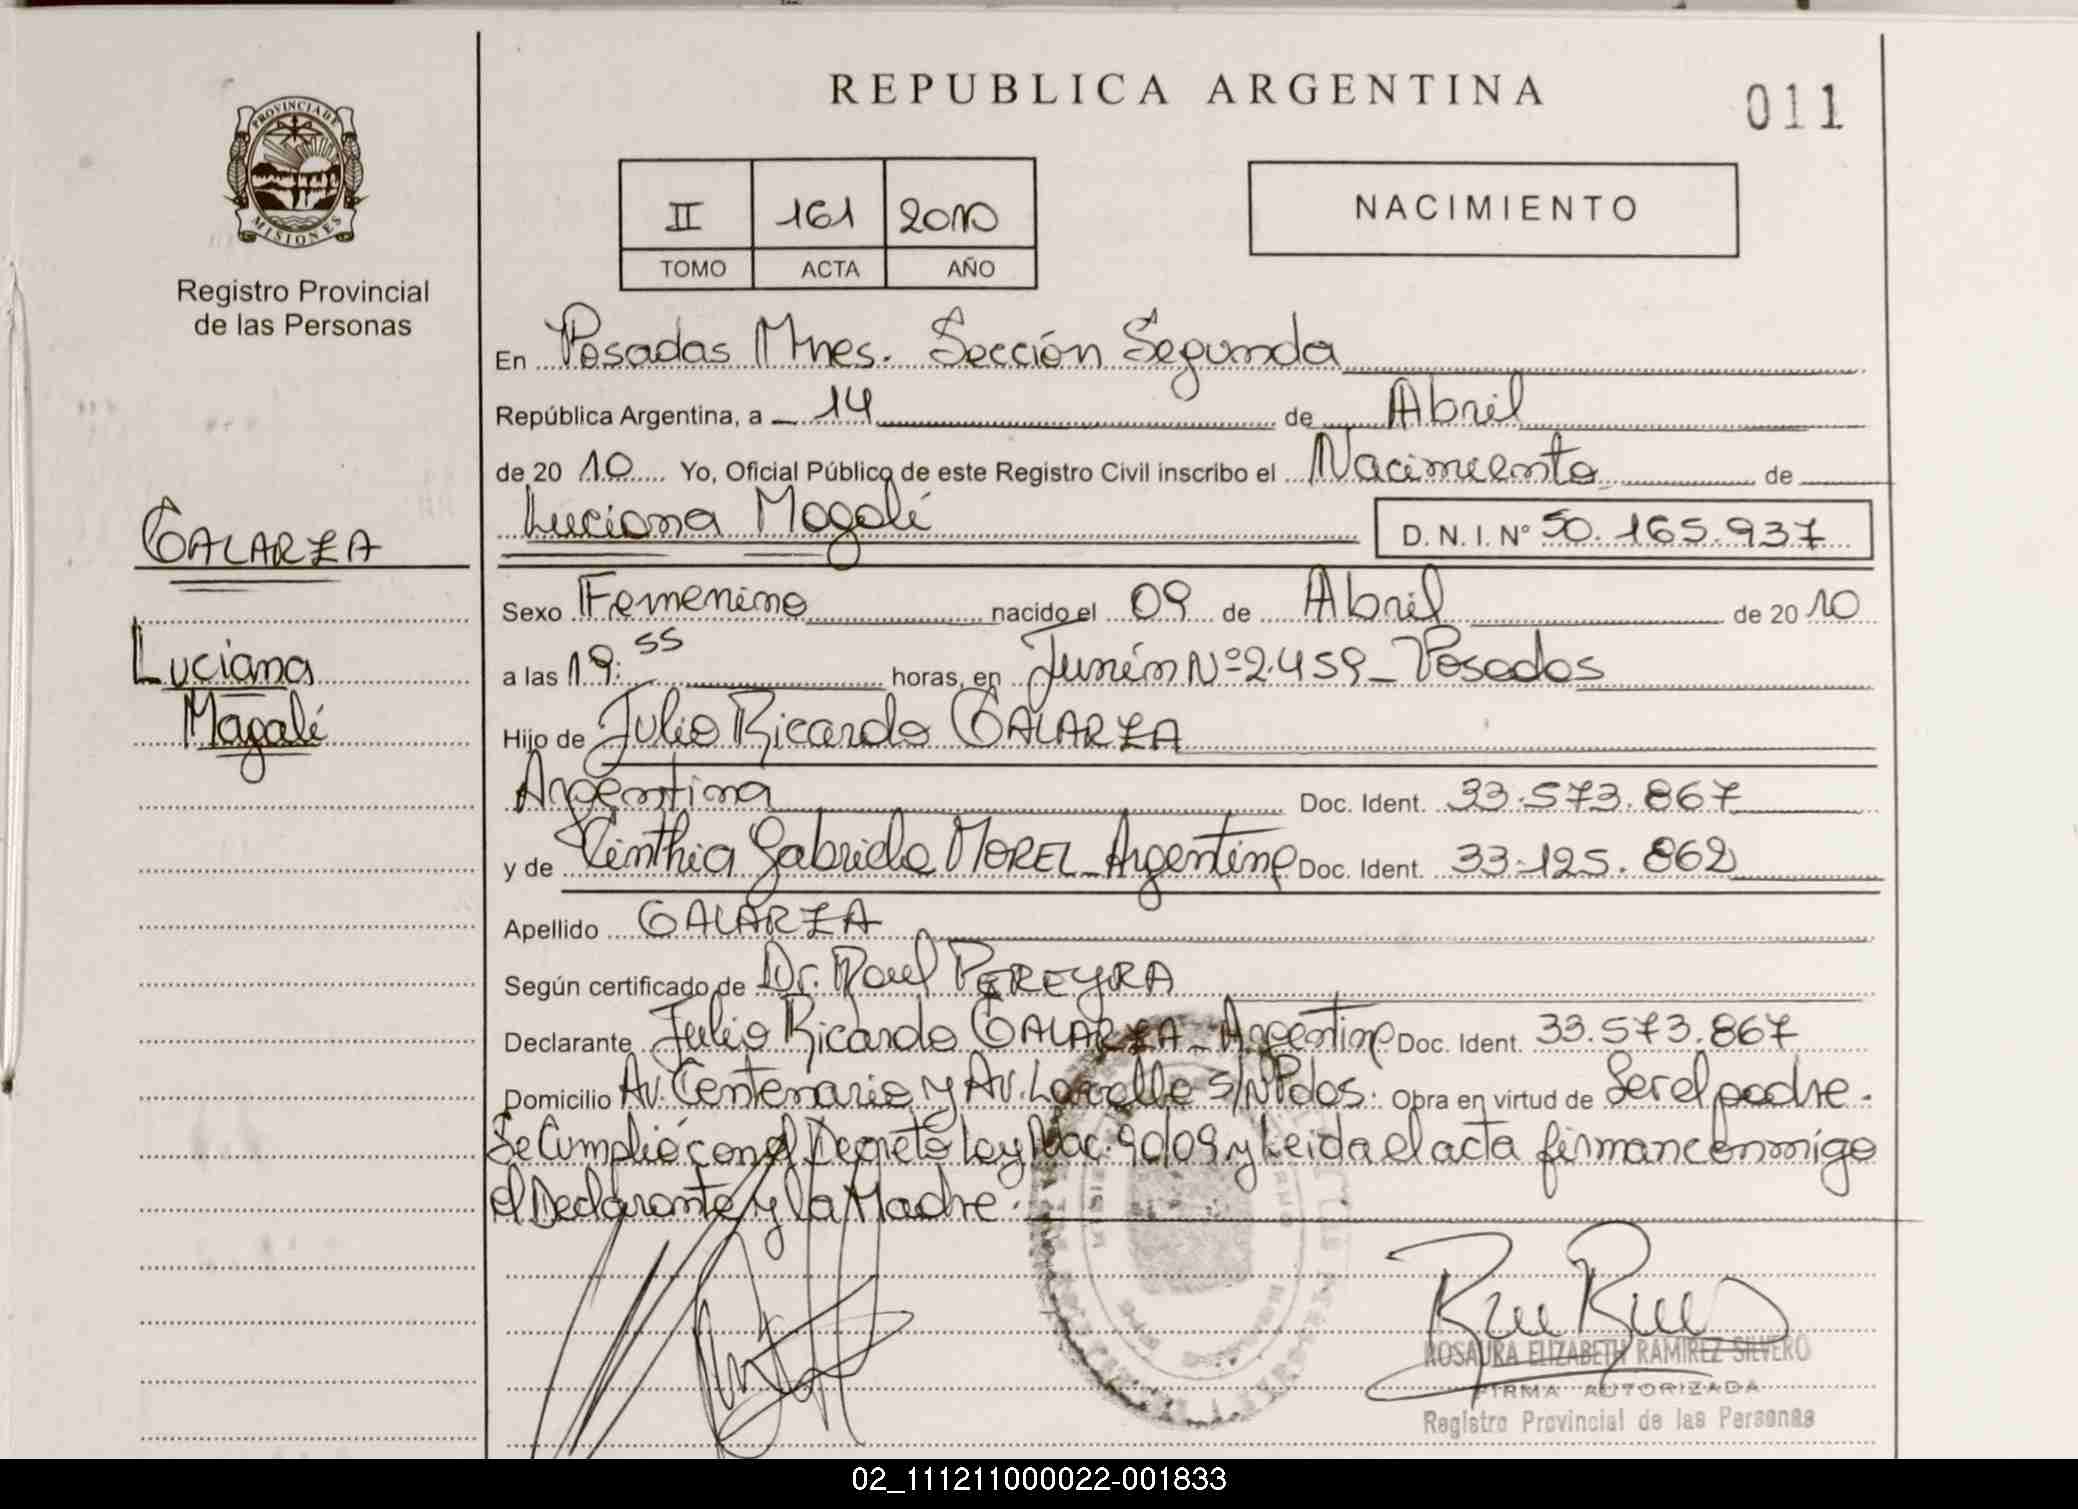 REPUBLICA ARGENTINA
011
PROVINCIA DE
MISIONES
Registro Provincial
de las Personas
II 161 2010
TOMO ACTA AÑO
NACIMIENTO
En Posadas Mnes. Sección Segunda
República Argentina, a 14 de Abril
de 20 10 Yo, Oficial Público de este Registro Civil inscribo el Nacimiento de
Luciana Magalí D. N. I. Nº 50.165.937
GALARZA
Luciana
Magalí
Sexo Femenino nacido el 09 de Abril de 20 10
a las 19:55 horas, en Junín Nº 2.459 - Posadas
Hijo de Julio Ricardo GALARZA
Argentina Doc. Ident. 33.573.867
y de Cinthia Gabriela MOREL - Argentina Doc. Ident. 33.125.862
Apellido GALARZA
Según certificado de Dr. Raul PEREYRA
Declarante Julio Ricardo GALARZA - Argentina Doc. Ident. 33.573.867
Domicilio Av. Centenario y Av. Lavalle S/N Pdas. Obra en virtud de Ser el padre.
Se Cumplió con el Decreto Ley Nac. 90/09 y Leida el acta firman conmigo
el Declarante y la Madre.
ROSAURA ELIZABETH RAMIREZ SILVERO
FIRMA AUTORIZADA
Registro Provincial de las Personas
02_111211000022-001833